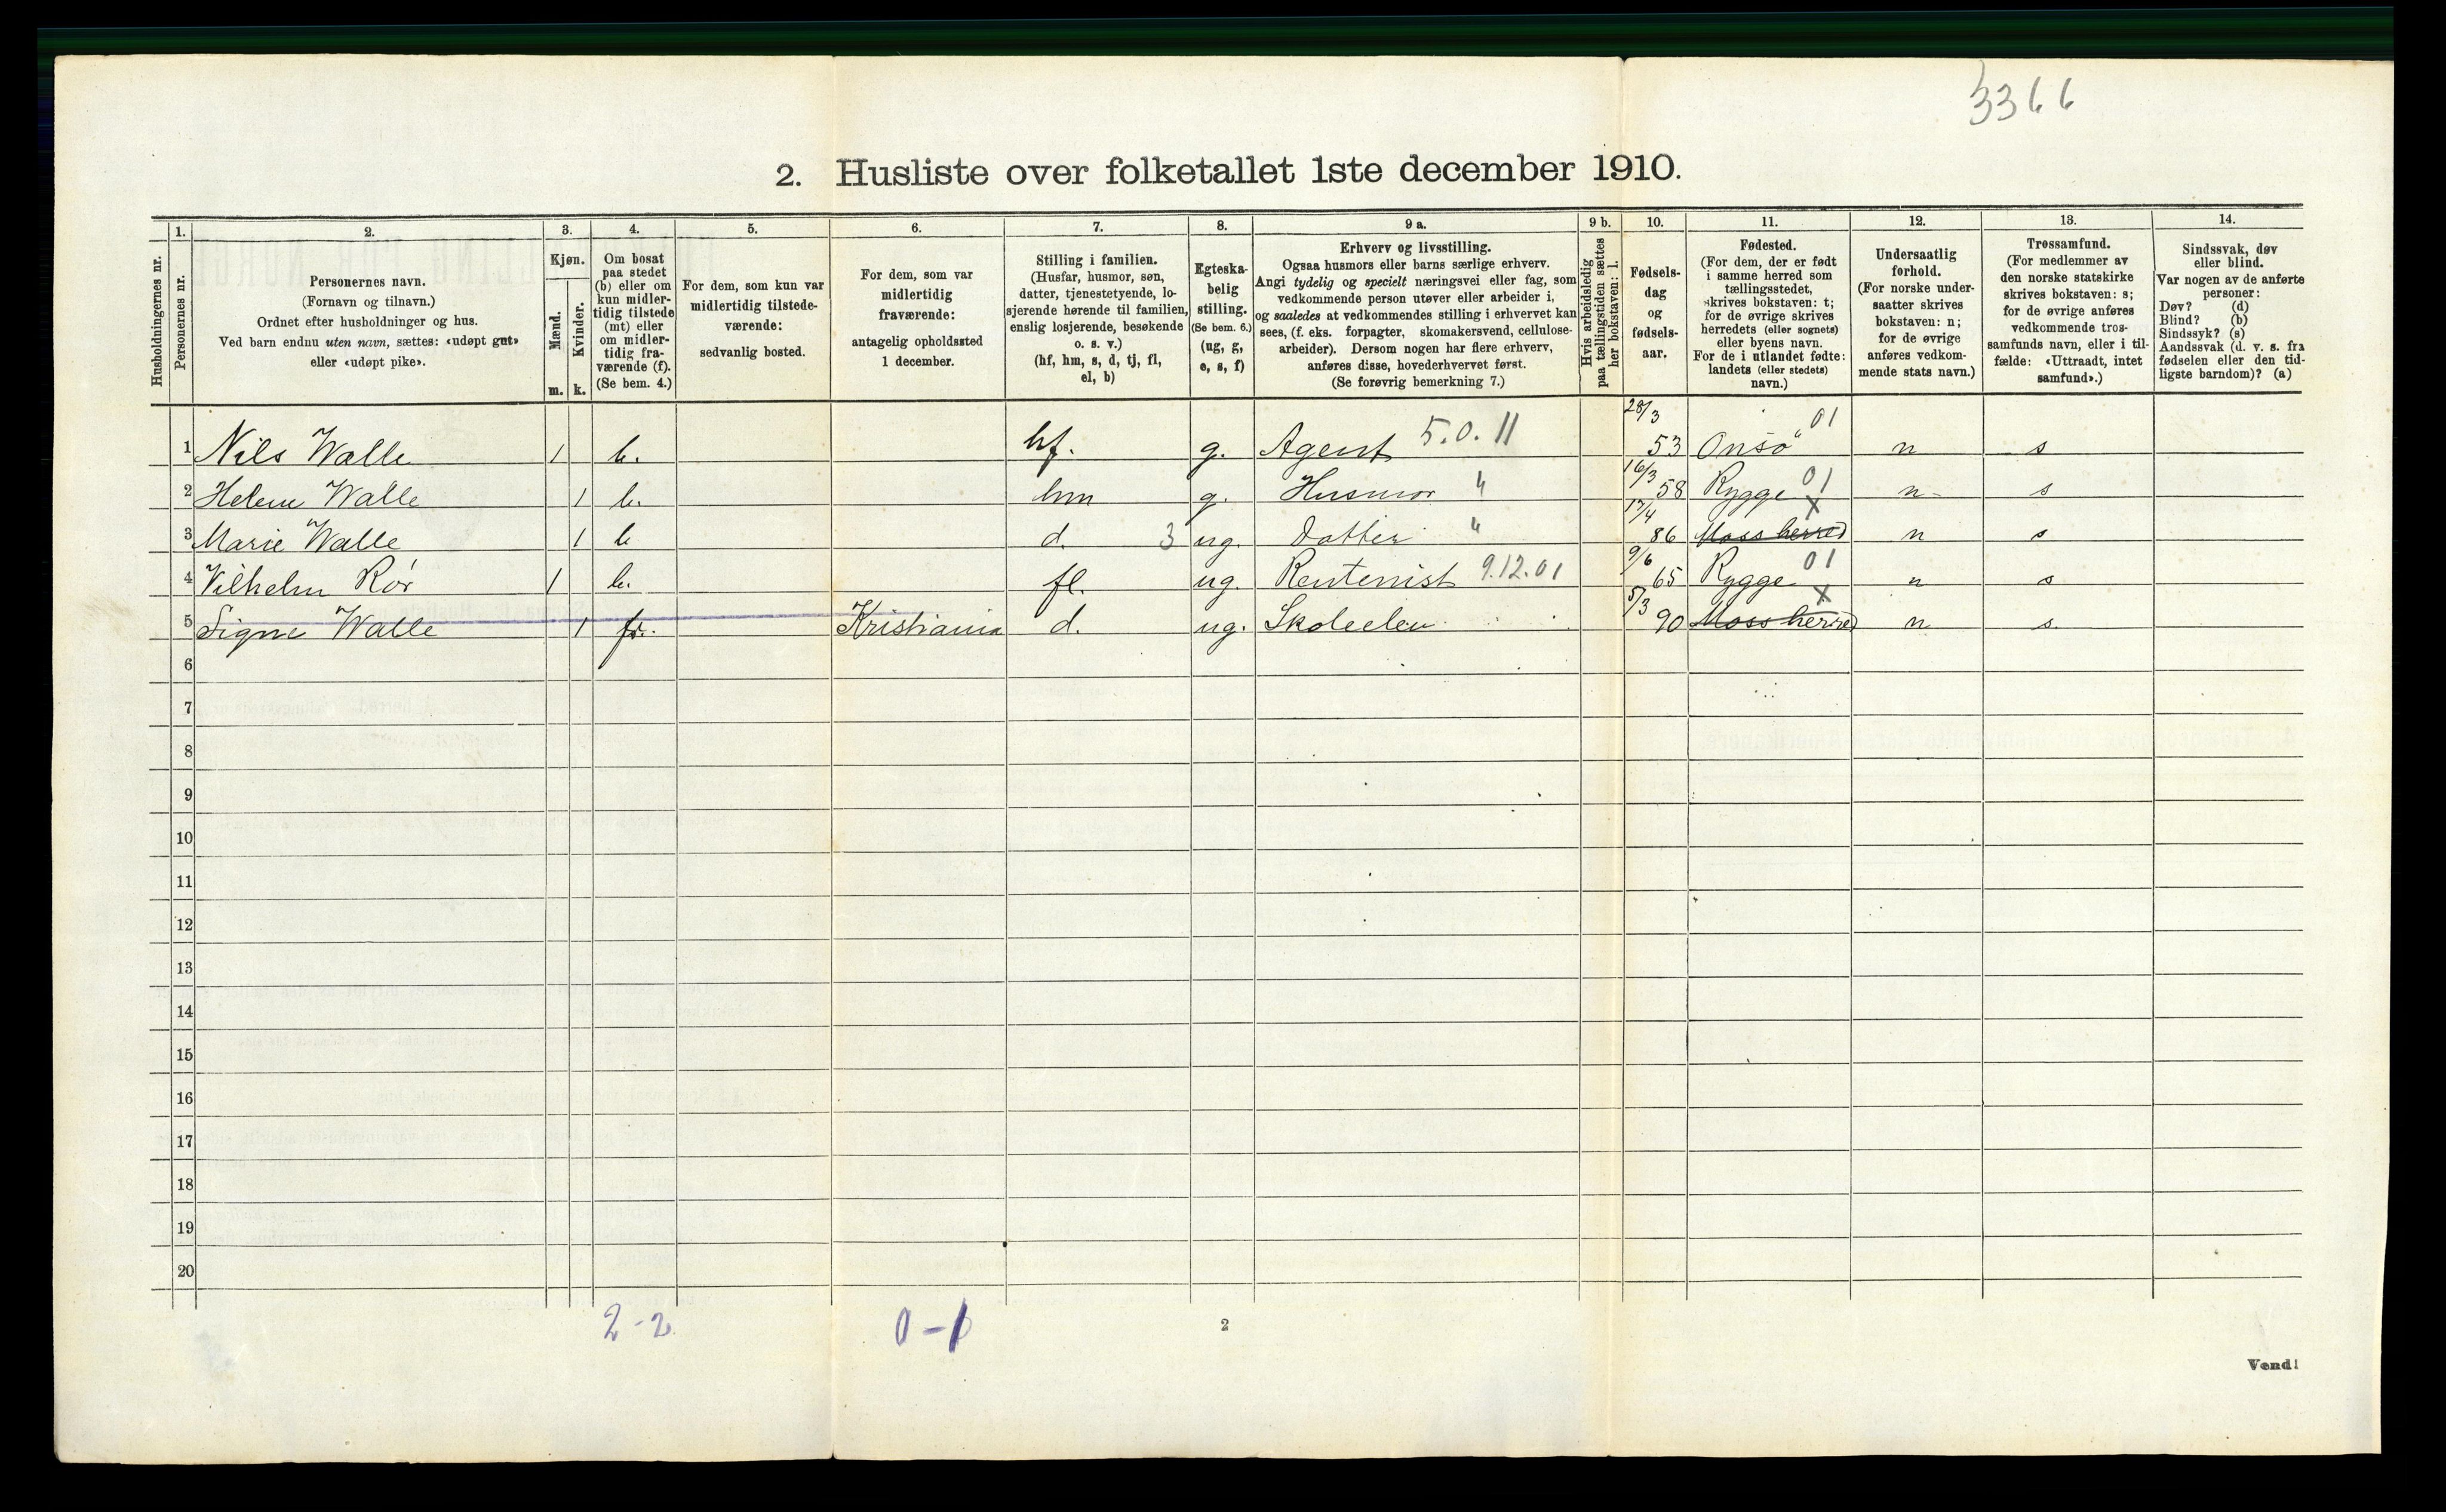 3366
2. Husliste over folketallet 1ste december 1910.
Husholdningernes nr.
1. Personernes nr.
2. Personernes navn.
(Fornavn og tilnavn.)
Ordnet efter husholdninger og hus.
Ved barn endnu uten navn, sættes: «udøpt gut»
eller «udøpt pike».
3. Kjøn.
Mænd. m.
Kvinder. k.
4. Om bosat
paa stedet
(b) eller om
kun midler-
tidig tilstede
(mt) eller
om midler-
tidig fra-
værende (f).
(Se bem. 4.)
5. For dem, som kun var
midlertidig tilstede-
værende:
sedvanlig bosted.
6. For dem, som var
midlertidig
fraværende:
antagelig opholdssted
1 december.
7. Stilling i familien.
(Husfar, husmor, søn,
datter, tjenestetyende, lo-
sjerende hørende til familien,
enslig losjerende, besøkende
o. s. v.)
(hf, hm, s, d, tj, fl,
el, b)
8. Egteska-
belig
stilling.
(Se bem. 6.)
(ug, g,
e, s, f)
9 a. Erhverv og livsstilling.
Ogsaa husmors eller barns særlige erhverv.
Angi tydelig og specielt næringsvei eller fag, som
vedkommende person utøver eller arbeider i,
og saaledes at vedkommendes stilling i erhvervet kan
sees, (f. eks. forpagter, skomakersvend, cellulose-
arbeider). Dersom nogen har flere erhverv,
anføres disse, hovederhvervet først.
(Se forøvrig bemerkning 7.)
9 b. Hvis arbeidsledig
paa tællingstiden sættes
her bokstaven: l.
10. Fødsels-
dag
og
fødsels-
aar.
11. Fødested.
(For dem, der er født
i samme herred som
tællingsstedet,
skrives bokstaven: t;
for de øvrige skrives
herredets (eller sognets)
eller byens navn.
For de i utlandet fødte:
landets (eller stedets)
navn.)
12. Undersaatlig
forhold.
(For norske under-
saatter skrives
bokstaven: n;
for de øvrige
anføres vedkom-
mende stats navn.)
13. Trossamfund.
(For medlemmer av
den norske statskirke
skrives bokstaven: s;
for de øvrige anføres
vedkommende tros-
samfunds navn, eller i til-
fælde: «Uttraadt, intet
samfund».)
14. Sindssvak, døv
eller blind.
Var nogen av de anførte
personer:
Døv? (d)
Blind? (b)
Sindssyk? (s)
Aandssvak (d. v. s. fra
fødselen eller den tid-
ligste barndom)? (a)
1 Nils Walle 1 b. hf. g. Agent 5.0.11 28/3 53 Onsö 01 n s
2 Helene Walle 1 b. hm g. Husmor " 16/3 58 Rygge 01 n s
3 Marie Walle 1 b d. 3 ug. Datter " 17/4 86 Moss herred X n s
4 Vilhelm Rör 1 b. fl. ug. Rentenist 9.12.01 9/6 65 Rygge 01 n s
5 Signe Walle 1 fr. Kristiania d. ug. Skoleelev 5/3 90 Moss herred X n s.
6
7
8
9
10
11
12
13
14
15
16
17
18
19
20
2-2 0-1
2
Vend!